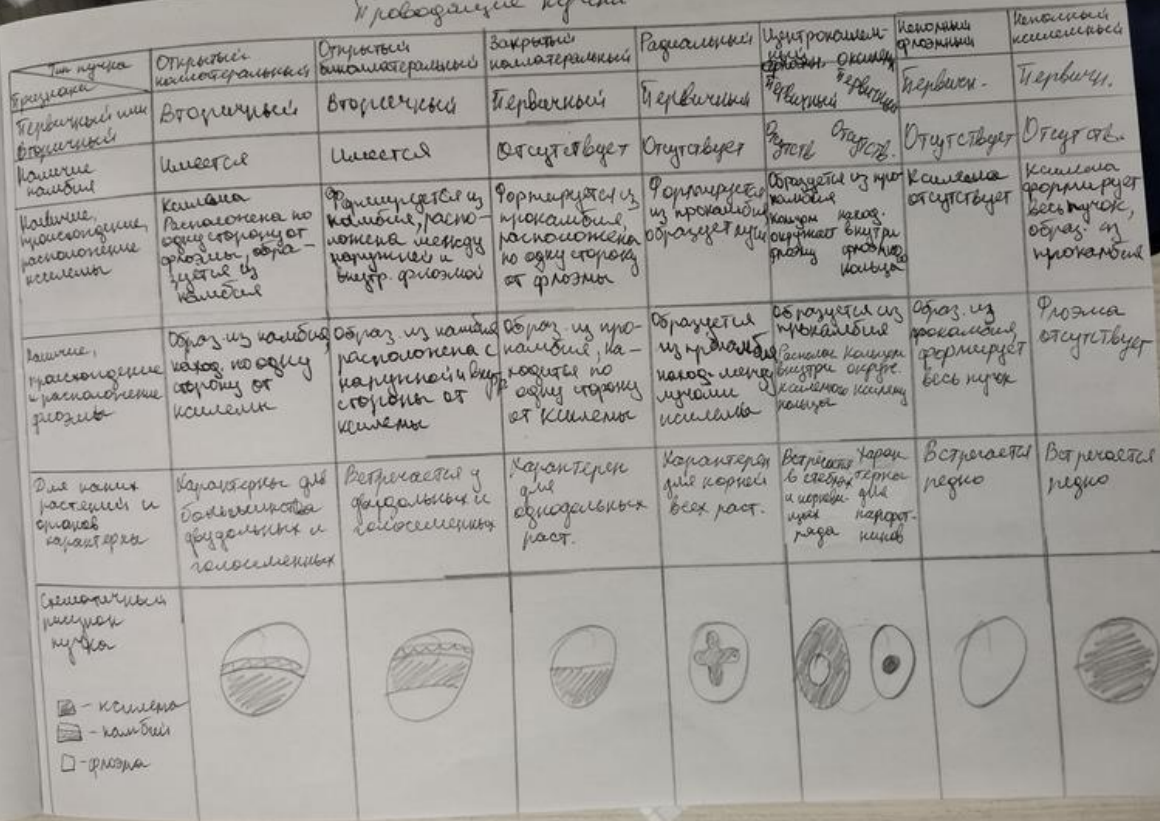 Проводящие пучки
Тип пучка
Признаки
Открытый
коллатеральный
Открытый
биколлатеральный
Закрытый
коллатеральный
Радиальный
Неполный
флоэмный
Неполный
ксилемный
Первичный или
вторичный
Вторичный
Вторичный
Первичный
Первичный
Первичный
Первичный
Первичн.
Первичн.
Наличие
камбия
Имеется
Имеется
Отсутствует
Отсутствует
Отсутств.
Отсутствует
Отсутств.
Наличие,
происхождение,
расположение
ксилемы
Ксилема
Расположена по
одну сторону от
флоэмы, обра-
зуется из
камбия
Формируется из
камбия, распо-
ложена между
наружней и
внутр. флоэмой
Формируется из
прокамбия,
расположена
по одну сторону
от флоэмы
Формируется
из прокамбия
образует лучи
Образуется из про-
камбия
Кольцом наход.
окружает внутри
флоэму флоэмного
кольца
Ксилема
отсутствует
Ксилема
формирует
весь пучок,
образ. из
прокамбия
Наличие,
происхождение
и расположение
флоэмы
Образ. из камбия,
наход. по одну
сторону от
ксилемы
Образ. из камбия
расположена с
наружной и внутр.
стороны от
ксилемы
Образ. из про-
камбия, на-
ходится по
одну сторону
от ксилемы
Образуется
из прокамбия
наход. между
лучами
ксилемы
Образуется из
прокамбия
Располож. кольцом
внутри окруж.
ксилемного ксилему
кольца
Образ. из
прокамбия,
формирует
весь пучок
Флоэма
отсутствует
Для каких
растений и
органов
характерны
Характерны для
большинства
двудольных и
голосеменных
Встречается у
двудольных и
голосеменных
Характерен
для
однодольных
раст.
Характерен
для корней
всех раст.
Встречается Харак-
в стеблях терны
и корневи- для
щах папорот-
ряда ников
Встречается
редко
Встречается
редко
Схематичный
рисунок
пучка
- ксилема
- камбий
- флоэма